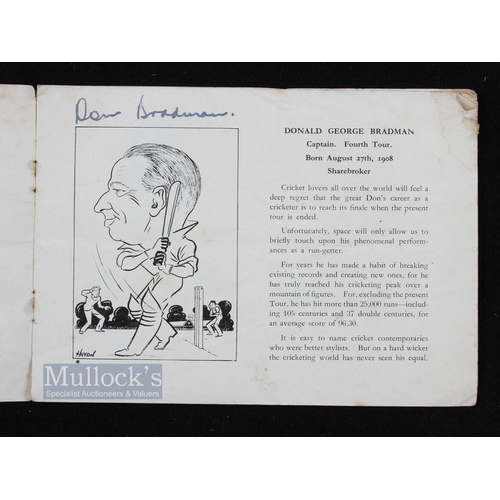 Don Bradman.
DONALD GEORGE BRADMAN
Captain. Fourth Tour.
Born August 27th, 1908
Sharebroker
Cricket lovers all over the world will feel a
deep regret that the great Don's career as a
cricketer is to reach its finale when the present
tour is ended.
Unfortunately, space will only allow us to
briefly touch upon his phenomenal perform-
ances as a run-getter.
For years he has made a habit of breaking
existing records and creating new ones, for he
has truly reached his cricketing peak over a
mountain of figures. For, excluding the present
Tour, he has hit more than 25,000 runs—includ-
ing 105 centuries and 37 double centuries, for
an average score of 96.30.
It is easy to name cricket contemporaries
who were better stylists. But on a hard wicket
the cricketing world has never seen his equal.
Mullock's
Specialist Auctioneers & Valuers